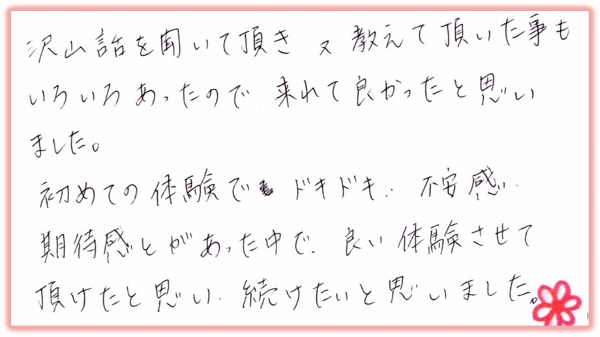 沢山話を聞いて頂き 又 教えて頂いた事も
いろいろあったので 来れて良かったと思い
ました。
初めての体験で ドキドキ.. 不安感.
期待感とがあった中で、良い体験させて
頂けたと思い、続けたいと思いました。